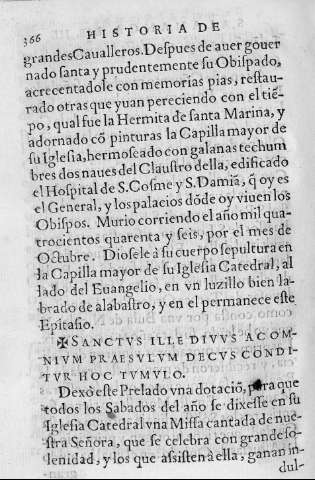 366 HISTORIA DE
grandes Caualleros. Despues de auer gouer
nado santa y prudentemente su Obispado,
acrecentadole con memorias pias, restau-
rado otras que yuan pereciendo con el tiē-
po, qual fue la Hermita de santa Marina, y
adornado cō pinturas la Capilla mayor de
su Iglesia, hermoseado con galanas techum
bres dos naues del Claustro della, edificado
el Hospital de S. Cosme y S. Damiā, q̄ oy es
el General, y los palacios dōde oy viuen los
Obispos. Murio corriendo el año mil qua-
trocientos quarenta y seis, por el mes de
Octubre. Diosele à su cuerpo sepultura en
la Capilla mayor de su Iglesia Catedral, al
lado del Euangelio, en vn luzillo bien la-
brado de alabastro, y en el permanece este
Epitafio.
✠ SANCTVS ILLE DIVVS ACOM-
NIVM PRAESVLVM DECVS CŌNDI-
TVR HOC TVMVLO.
Dexò este Prelado vna dotaciō, para que
todos los Sabados del año se dixesse en su
Iglesia Catedral vna Missa cantada de nue-
stra Señora, que se celebra con grande so-
lenidad, y los que assisten à ella, ganan in-
dul-